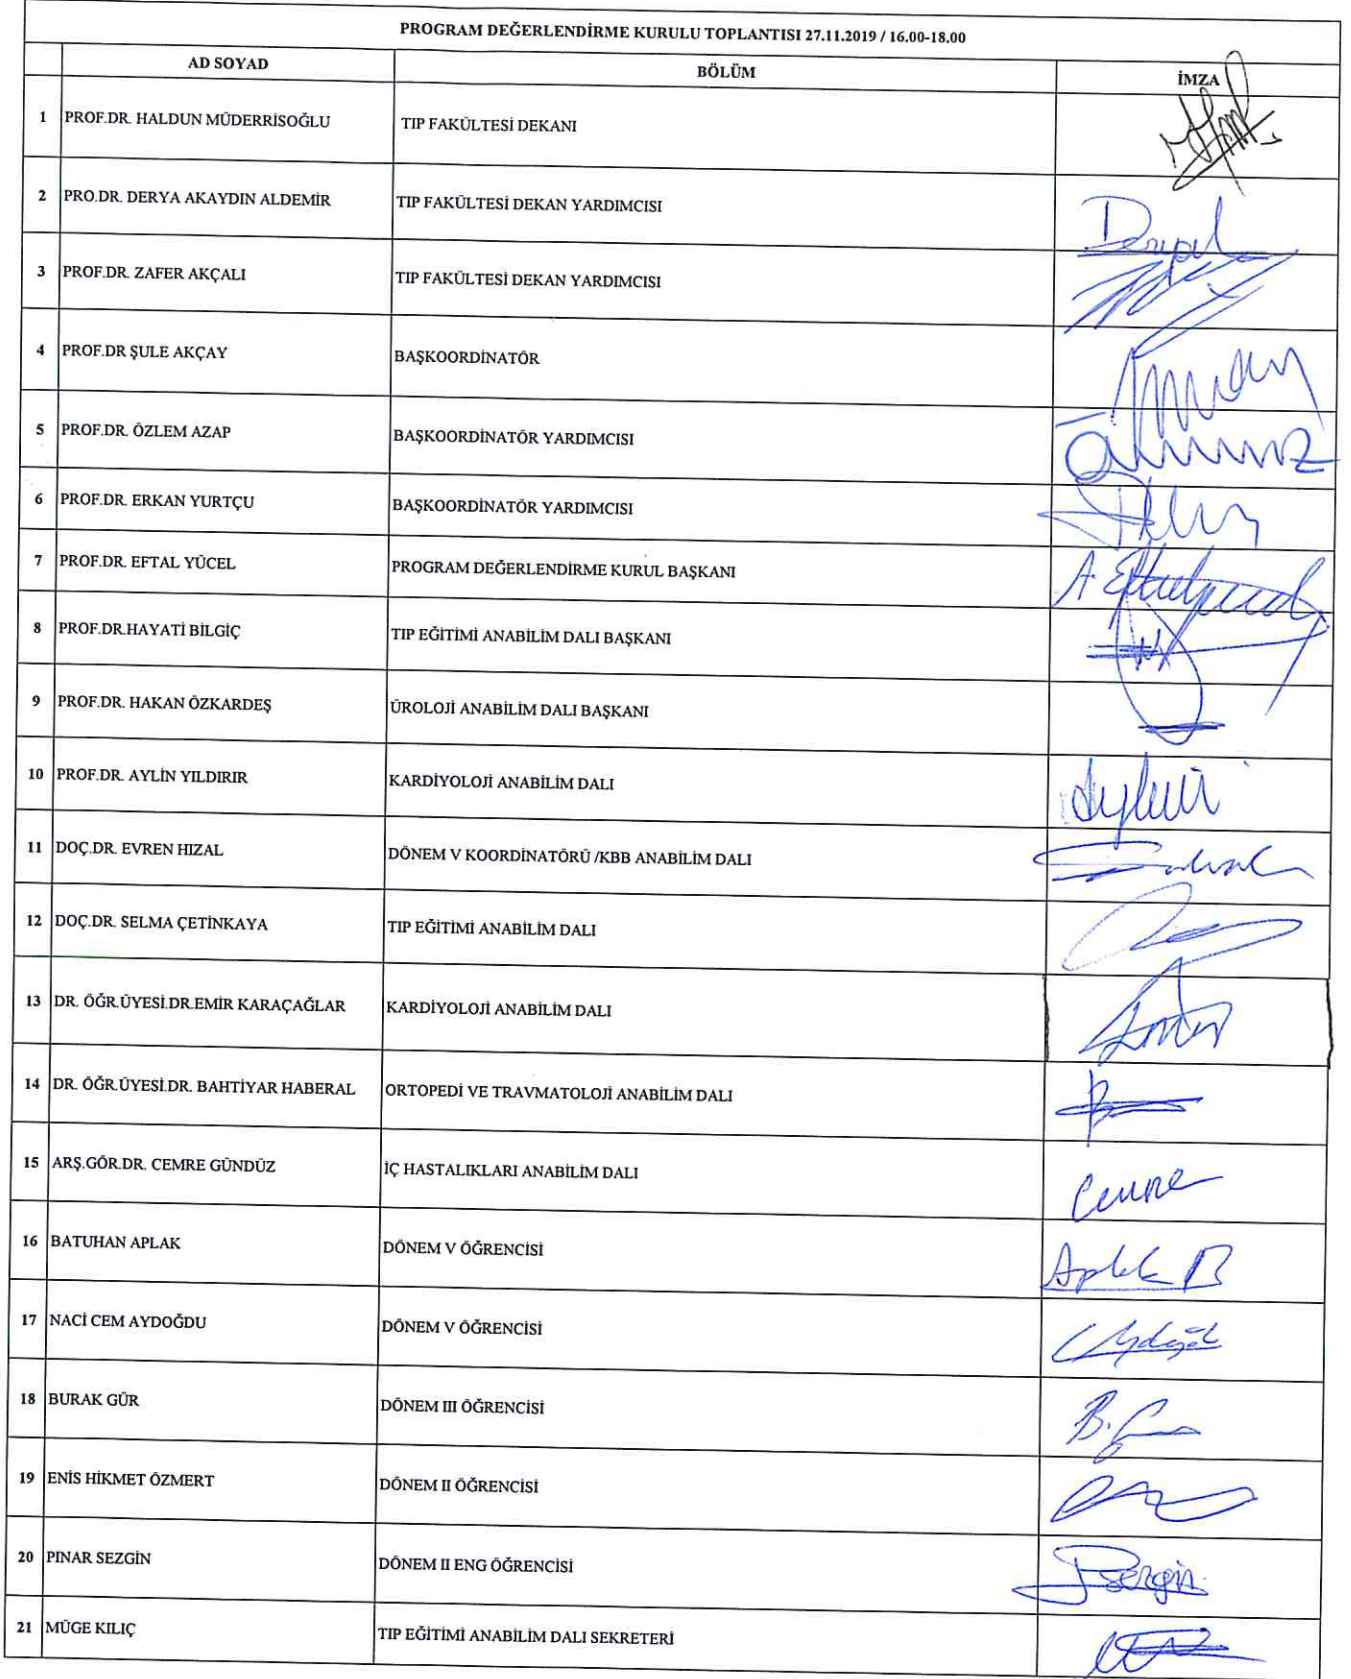 PROGRAM DEĞERLENDİRME KURULU TOPLANTISI 27.11.2019 / 16.00-18.00
AD SOYAD BÖLÜM İMZA
1 PROF.DR. HALDUN MÜDERRİSOĞLU TIP FAKÜLTESİ DEKANI
2 PRO.DR. DERYA AKAYDIN ALDEMİR TIP FAKÜLTESİ DEKAN YARDIMCISI
3 PROF.DR. ZAFER AKÇALI TIP FAKÜLTESİ DEKAN YARDIMCISI
4 PROF.DR ŞULE AKÇAY BAŞKOORDİNATÖR
5 PROF.DR. ÖZLEM AZAP BAŞKOORDİNATÖR YARDIMCISI
6 PROF.DR. ERKAN YURTÇU BAŞKOORDİNATÖR YARDIMCISI
7 PROF.DR. EFTAL YÜCEL PROGRAM DEĞERLENDİRME KURUL BAŞKANI
8 PROF.DR.HAYATİ BİLGİÇ TIP EĞİTİMİ ANABİLİM DALI BAŞKANI
9 PROF.DR. HAKAN ÖZKARDEŞ ÜROLOJİ ANABİLİM DALI BAŞKANI
10 PROF.DR. AYLİN YILDIRIR KARDİYOLOJİ ANABİLİM DALI
11 DOÇ.DR. EVREN HIZAL DÖNEM V KOORDİNATÖRÜ /KBB ANABİLİM DALI
12 DOÇ.DR. SELMA ÇETİNKAYA TIP EĞİTİMİ ANABİLİM DALI
13 DR. ÖĞR.ÜYESİ.DR.EMİR KARAÇAĞLAR KARDİYOLOJİ ANABİLİM DALI
14 DR. ÖĞR.ÜYESİ.DR. BAHTİYAR HABERAL ORTOPEDİ VE TRAVMATOLOJİ ANABİLİM DALI
15 ARŞ.GÖR.DR. CEMRE GÜNDÜZ İÇ HASTALIKLARI ANABİLİM DALI Cemre
16 BATUHAN APLAK DÖNEM V ÖĞRENCİSİ Aplak B
17 NACİ CEM AYDOĞDU DÖNEM V ÖĞRENCİSİ
18 BURAK GÜR DÖNEM III ÖĞRENCİSİ
19 ENİS HİKMET ÖZMERT DÖNEM II ÖĞRENCİSİ
20 PINAR SEZGİN DÖNEM II ENG ÖĞRENCİSİ
21 MÜGE KILIÇ TIP EĞİTİMİ ANABİLİM DALI SEKRETERİ